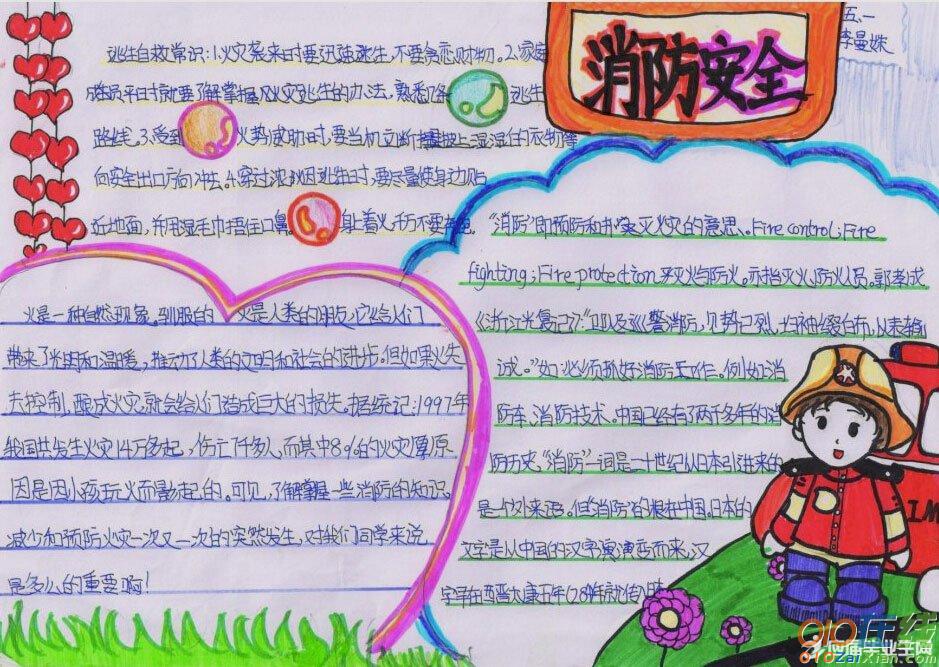 消防安全
五.一
李曼姝
逃生自救常识:1.火灾袭来时要迅速逃生,不要贪恋财物。2.家庭
成员平时就要了解掌握火灾逃生的办法,熟悉 逃生
路线。3.受到 火势威胁时,要当机立断披上湿的衣物等
向安全出口方向冲去。4.穿过浓烟逃生时,要尽量使身边贴
近地面,并用湿毛巾捂住口鼻 身上着火,千万不要奔跑
火是一种自然现象,驯服的 火是人类的朋友,它给人们
带来了光明和温暖,推动了人类的文明和社会的进步。但如果火失
去控制,酿成火灾,就会给人们造成巨大的损失。据统记:1997年
我国共发生火灾14万多起,伤亡7千多人,而其中8%的火灾原
因是因小孩玩火而引起的。可见,了解掌握一些消防的知识,
减少和预防火灾一次又一次的突然发生,对我们同学来说
是多么的重要啊!
“消防”即预防和扑灭火灾的意思。Fire control;Fire
fighting;Fire protection.灭火与防火。亦指灭火防火人员。郭孝成
《浙江光复记》:“卫队及巡警消防,见势已烈,白布,以表输
诚。”如:必须抓好消防工作。例如:消
防车、消防技术。中国已经有了两千多年的消
防历史。“消防”一词是二十世纪从日本引进来的
是个外来语。但消防的根在中国。日本的
文字是从中国的汉字演变而来,汉
字早在西晋太康五年(284年)就传入
IM
910在线
应届毕业生网
910zaixian.com